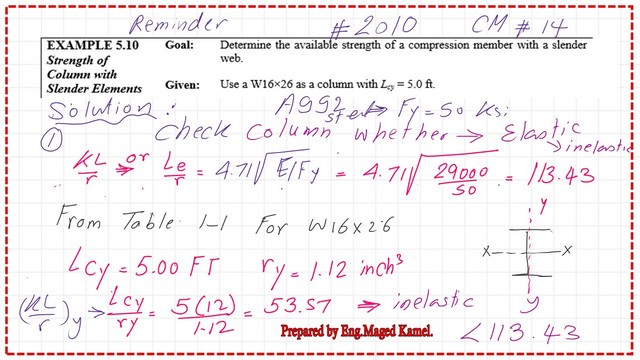 Reminder #2010 CM #14
EXAMPLE 5.10 Goal: Determine the available strength of a compression member with a slender
Strength of web.
Column with
Slender Elements Given: Use a W16×26 as a column with Lcy = 5.0 ft.
Solution: A992 steel → Fy = 50 ksi
① Check Column whether → Elastic
→ inelastic
KL/r or ⇒ Le/r = 4.71√E/Fy = 4.71√29000/50 = 113.43
From Table 1-1 For W16x26
y
X X
y
Lcy = 5.00 FT ry = 1.12 inch³
(KL/r)y → Lcy/ry = 5(12)/1.12 = 53.57 ⇒ inelastic
Prepared by Eng.Maged Kamel.
<113.43